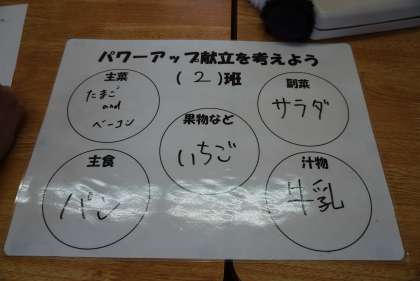 パワーアップ献立を考えよう
(2)班
主菜
たまご
and
ベーコン
副菜
サラダ
果物など
いちご
主食
パン
汁物
牛乳